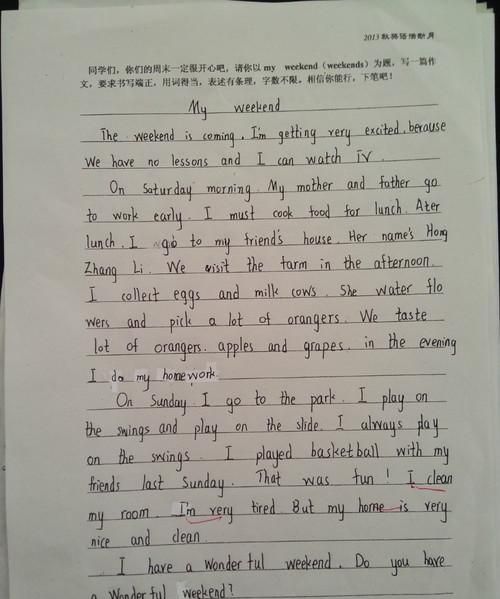 2013秋英语活动月
同学们，你们的周末一定很开心吧，请你以 my weekend（weekends）为题，写一篇作
文，要求书写端正，用词得当，表述有条理，字数不限。相信你能行，下笔吧！
My weekend
The weekend is coming. I'm getting very excited. because
We have no lessons and I can watch TV.
On Saturday morning. My mother and father go
to work early. I must cook food for lunch. Ater
lunch. I go to my friend's house. Her name's Hong
Zhang Li. We visit the farm in the afternoon.
I collect eggs and milk cows. She water flo
wers and pick a lot of orangers. We taste
lot of orangers. apples and grapes. in the evening
I do my homework.
On Sunday. I go to the park. I play on
the swings and play on the slide. I always play
on the swings. I played basketball with my
friends last Sunday. That was fun! I clean
my room. I'm very tired. But my home is very
nice and clean.
I have a wonderful weekend. Do you have
a wonderful weekend?